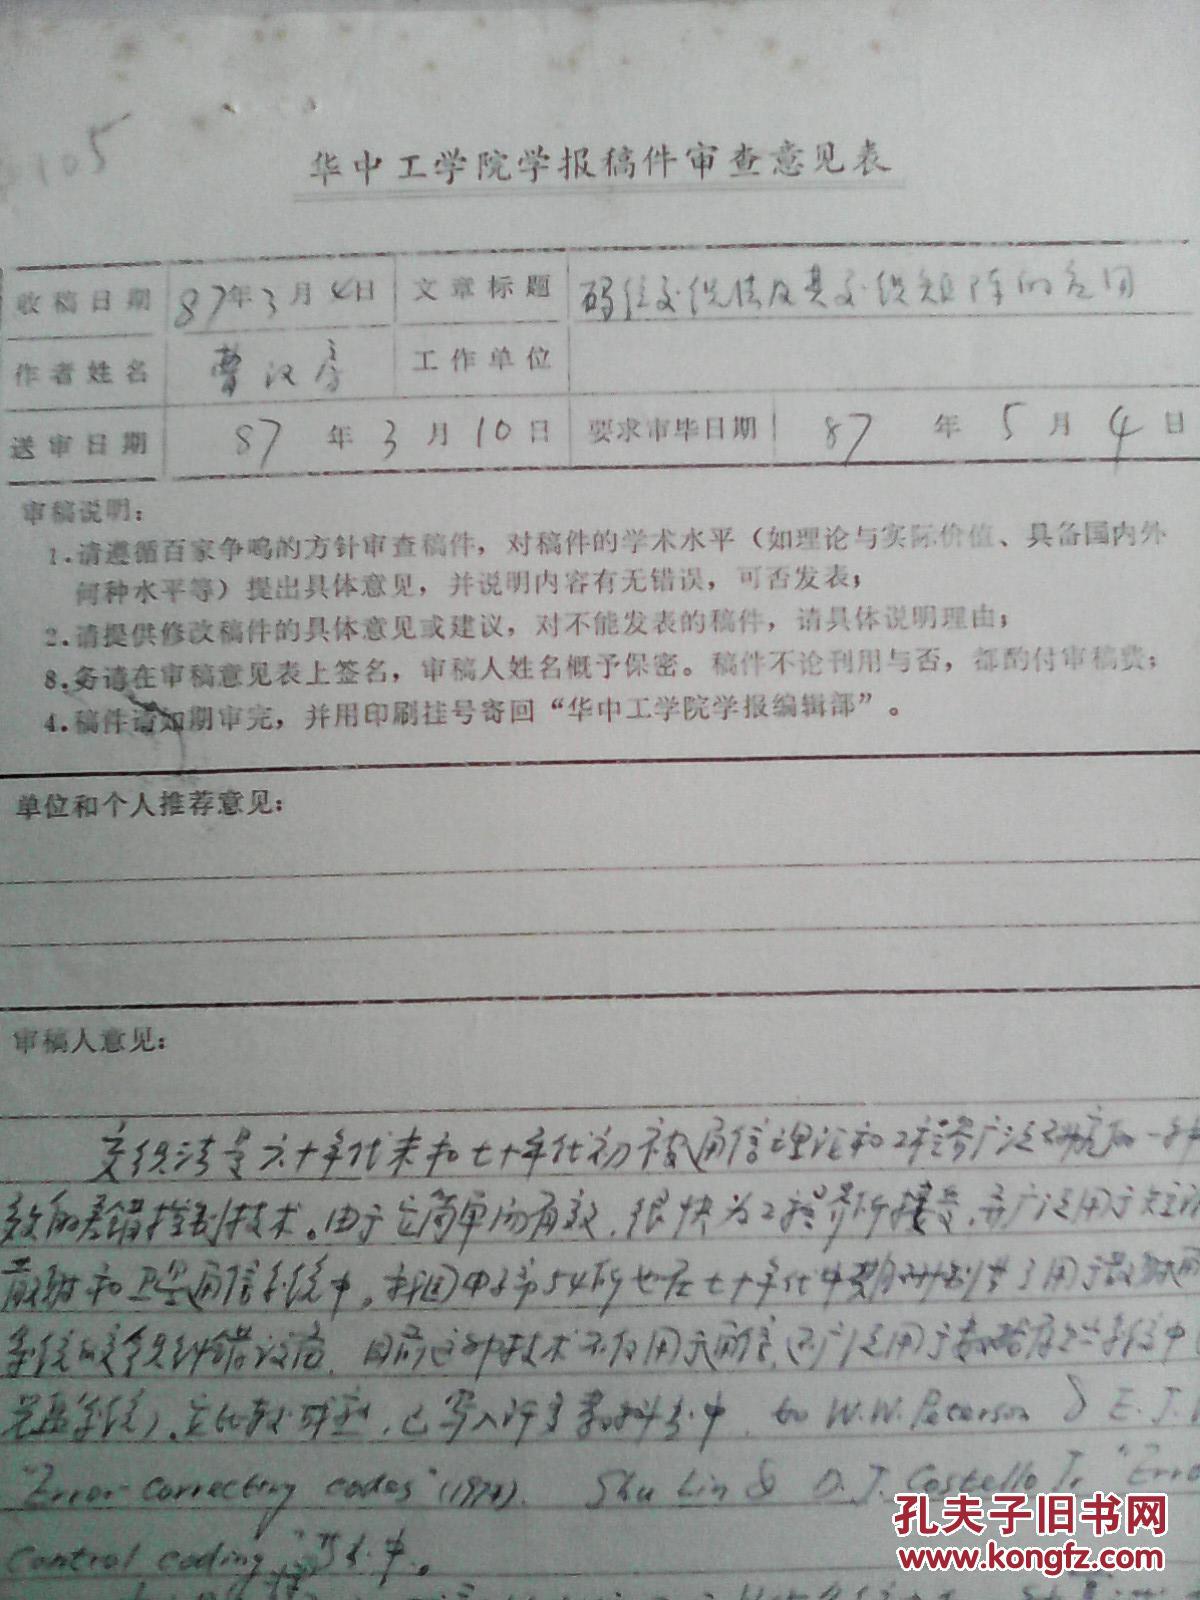 105
华中工学院学报稿件审查意见表
收稿日期 87年3月4日 文章标题 码位交织法及其交织矩阵的应用
作者姓名 曹汉房 工作单位
送审日期 87年3月10日 要求审毕日期 87年5月4日
审稿说明：
1.请遵循百家争鸣的方针审查稿件，对稿件的学术水平（如理论与实际价值、具备国内外
何种水平等）提出具体意见，并说明内容有无错误，可否发表；
2.请提供修改稿件的具体意见或建议，对不能发表的稿件，请具体说明理由；
3.务请在审稿意见表上签名，审稿人姓名概予保密。稿件不论刊用与否，都酌付审稿费；
4.稿件请如期审完，并用印刷挂号寄回“华中工学院学报编辑部”。
单位和个人推荐意见：
审稿人意见：
交织法是六十年代末和七十年代初被通信理论和工程界广泛研究的一种
效的差错控制技术。由于它简单而有效，很快为工程界所接受，并广泛用于短波
散射和卫星通信系统中。我国电子部54所也在七十年代中期研制出了用于散射通
系统的交织纠错设备。目前这种技术不仅用于通信，还广泛用于数据存贮系统中
光盘系统），它比较成熟，已写入许多教科书中，如 W.W. Peterson & E.J.
"Error-correcting codes" Shu Lin & D.J. Costello Jr "Error
Control coding" 等书中。
孔夫子旧书网
www.kongfz.com